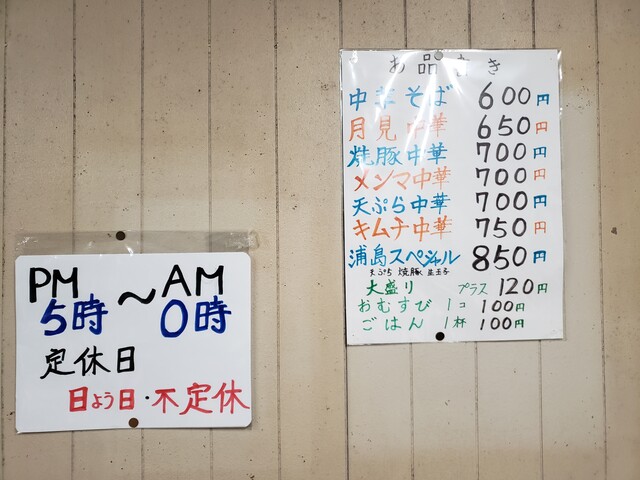 お品書き
中華そば 600円
月見中華 650円
焼豚中華 700円
メンマ中華 700円
天ぷら中華 700円
キムチ中華 750円
浦島スペシャル 850円
天ぷら 焼豚 生玉子
大盛り プラス 120円
おむすび 1コ 100円
ごはん 1杯 100円
PM 5時 ～ AM 0時
定休日
日よう日・不定休